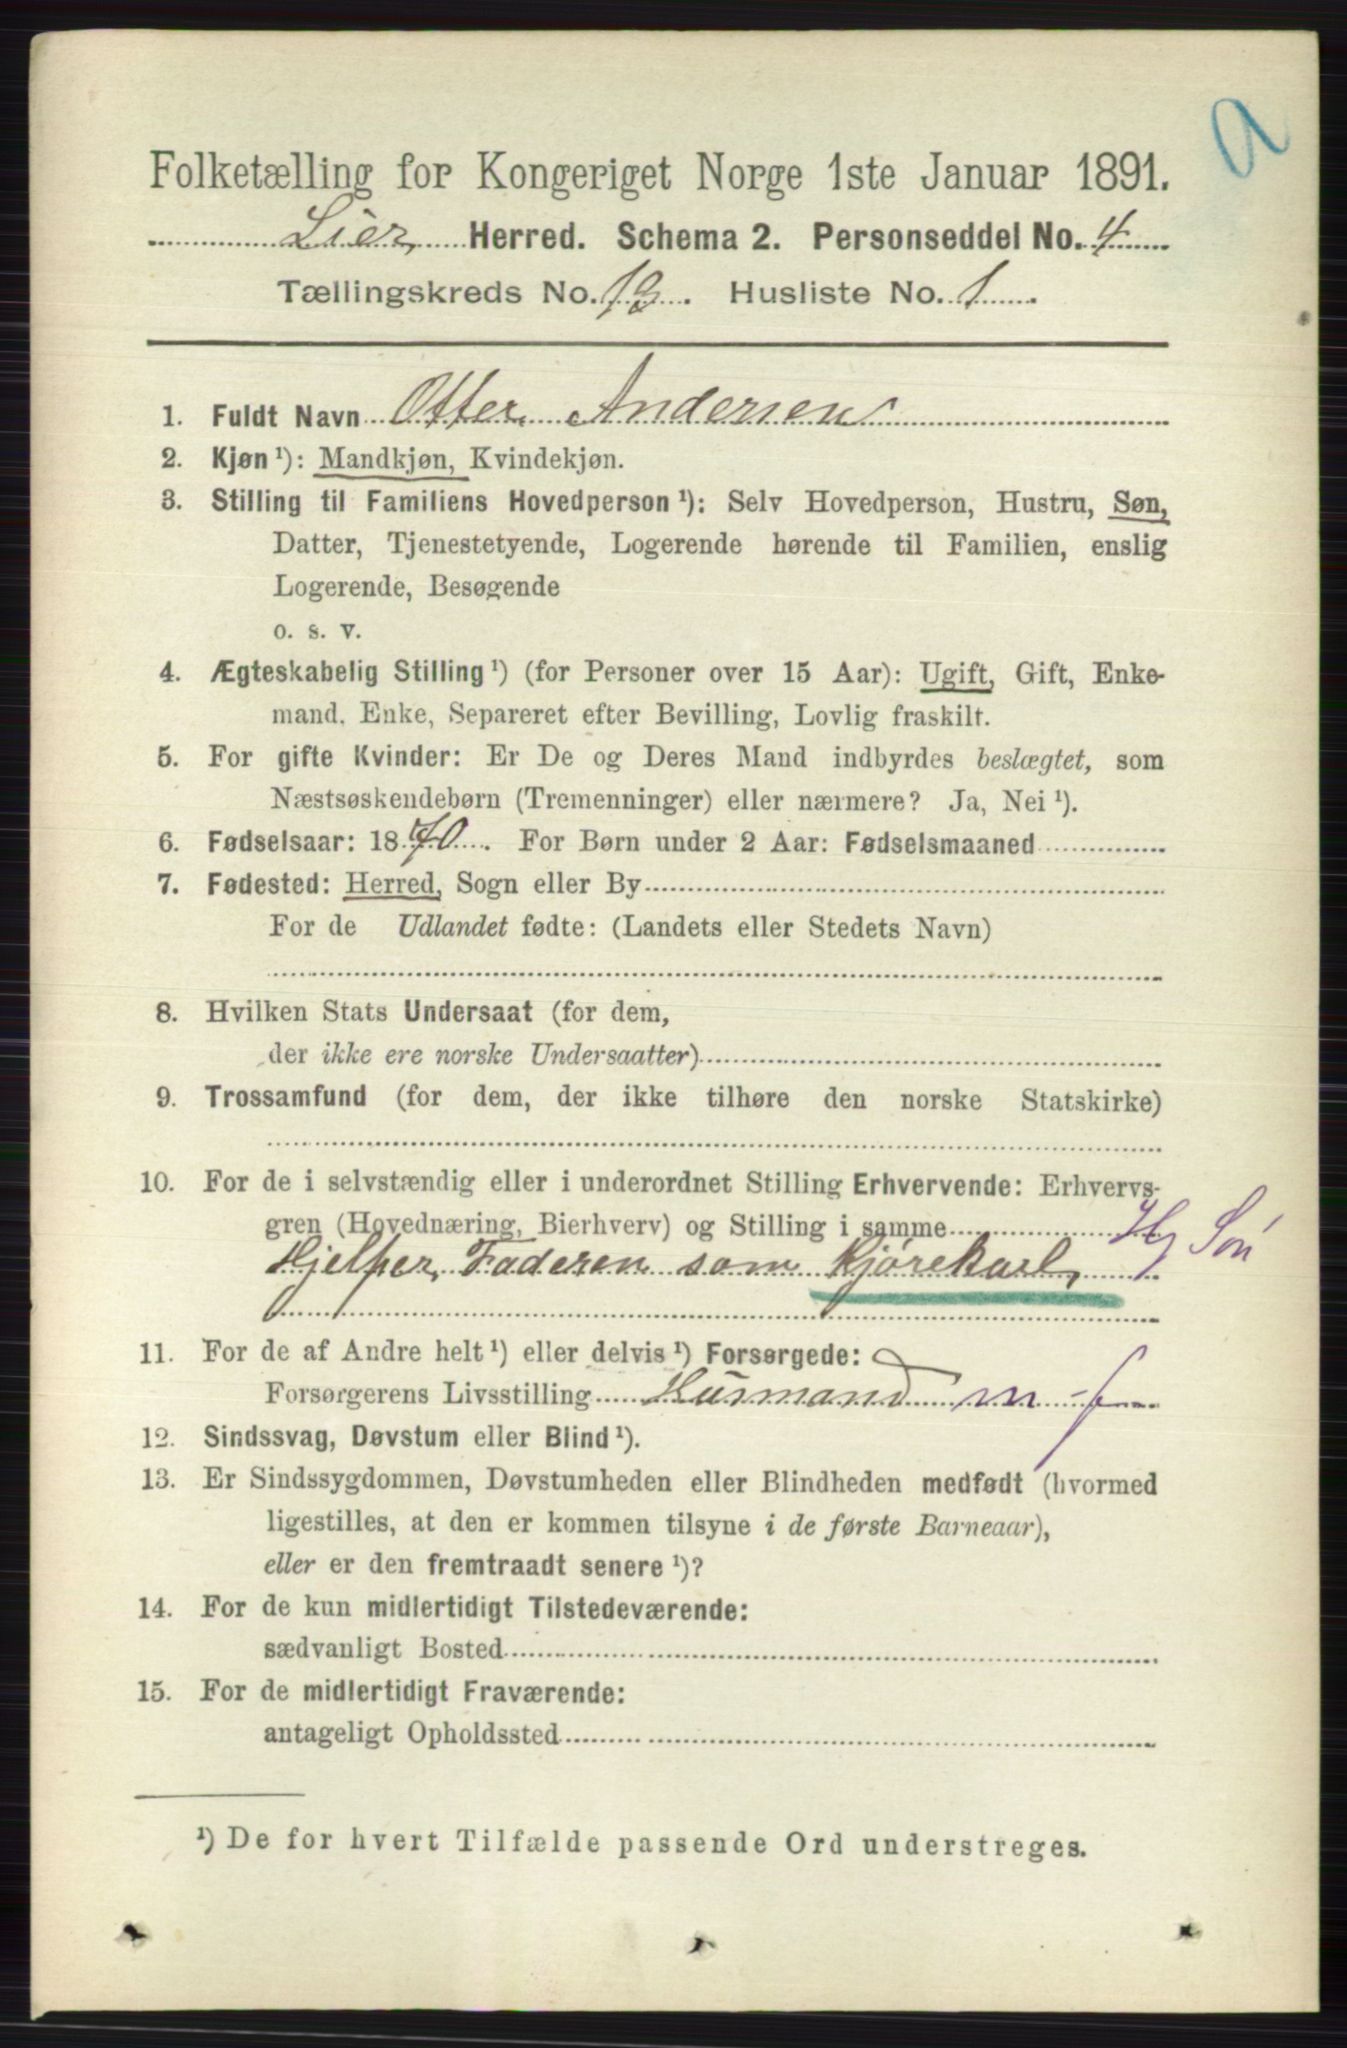 a
Folketælling for Kongeriget Norge 1ste Januar 1891.
Lier Herred. Schema 2. Personseddel No. 4
Tællingskreds No. 13. Husliste No. 1.
1. Fuldt Navn Otter Andersen
2. Kjøn ¹): Mandkjøn, Kvindekjøn.
3. Stilling til Familiens Hovedperson ¹): Selv Hovedperson, Hustru, Søn,
Datter, Tjenestetyende, Logerende hørende til Familien, enslig
Logerende, Besøgende
o. s. v.
4. Ægteskabelig Stilling ¹) (for Personer over 15 Aar): Ugift, Gift, Enke-
mand, Enke, Separeret efter Bevilling, Lovlig fraskilt.
5. For gifte Kvinder: Er De og Deres Mand indbyrdes beslægtet, som
Næstsøskendebørn (Tremenninger) eller nærmere? Ja, Nei ¹).
6. Fødselsaar: 1870. For Børn under 2 Aar: Fødselsmaaned
7. Fødested: Herred, Sogn eller By
For de Udlandet fødte: (Landets eller Stedets Navn)
8. Hvilken Stats Undersaat (for dem,
der ikke ere norske Undersaatter)
9. Trossamfund (for dem, der ikke tilhøre den norske Statskirke)
10. For de i selvstændig eller i underordnet Stilling Erhvervende: Erhvervs-
gren (Hovednæring, Bierhverv) og Stilling i samme Hj Sön
Hjelper Faderen som Kjørekarl
11. For de af Andre helt ¹) eller delvis ¹) Forsørgede:
Forsørgerens Livsstilling Husmand m f
12. Sindssvag, Døvstum eller Blind ¹).
13. Er Sindssygdommen, Døvstumheden eller Blindheden medfødt (hvormed
ligestilles, at den er kommen tilsyne i de første Barneaar),
eller er den fremtraadt senere ¹)?
14. For de kun midlertidigt Tilstedeværende:
sædvanligt Bosted
15. For de midlertidigt Fraværende:
antageligt Opholdssted
¹) De for hvert Tilfælde passende Ord understreges.